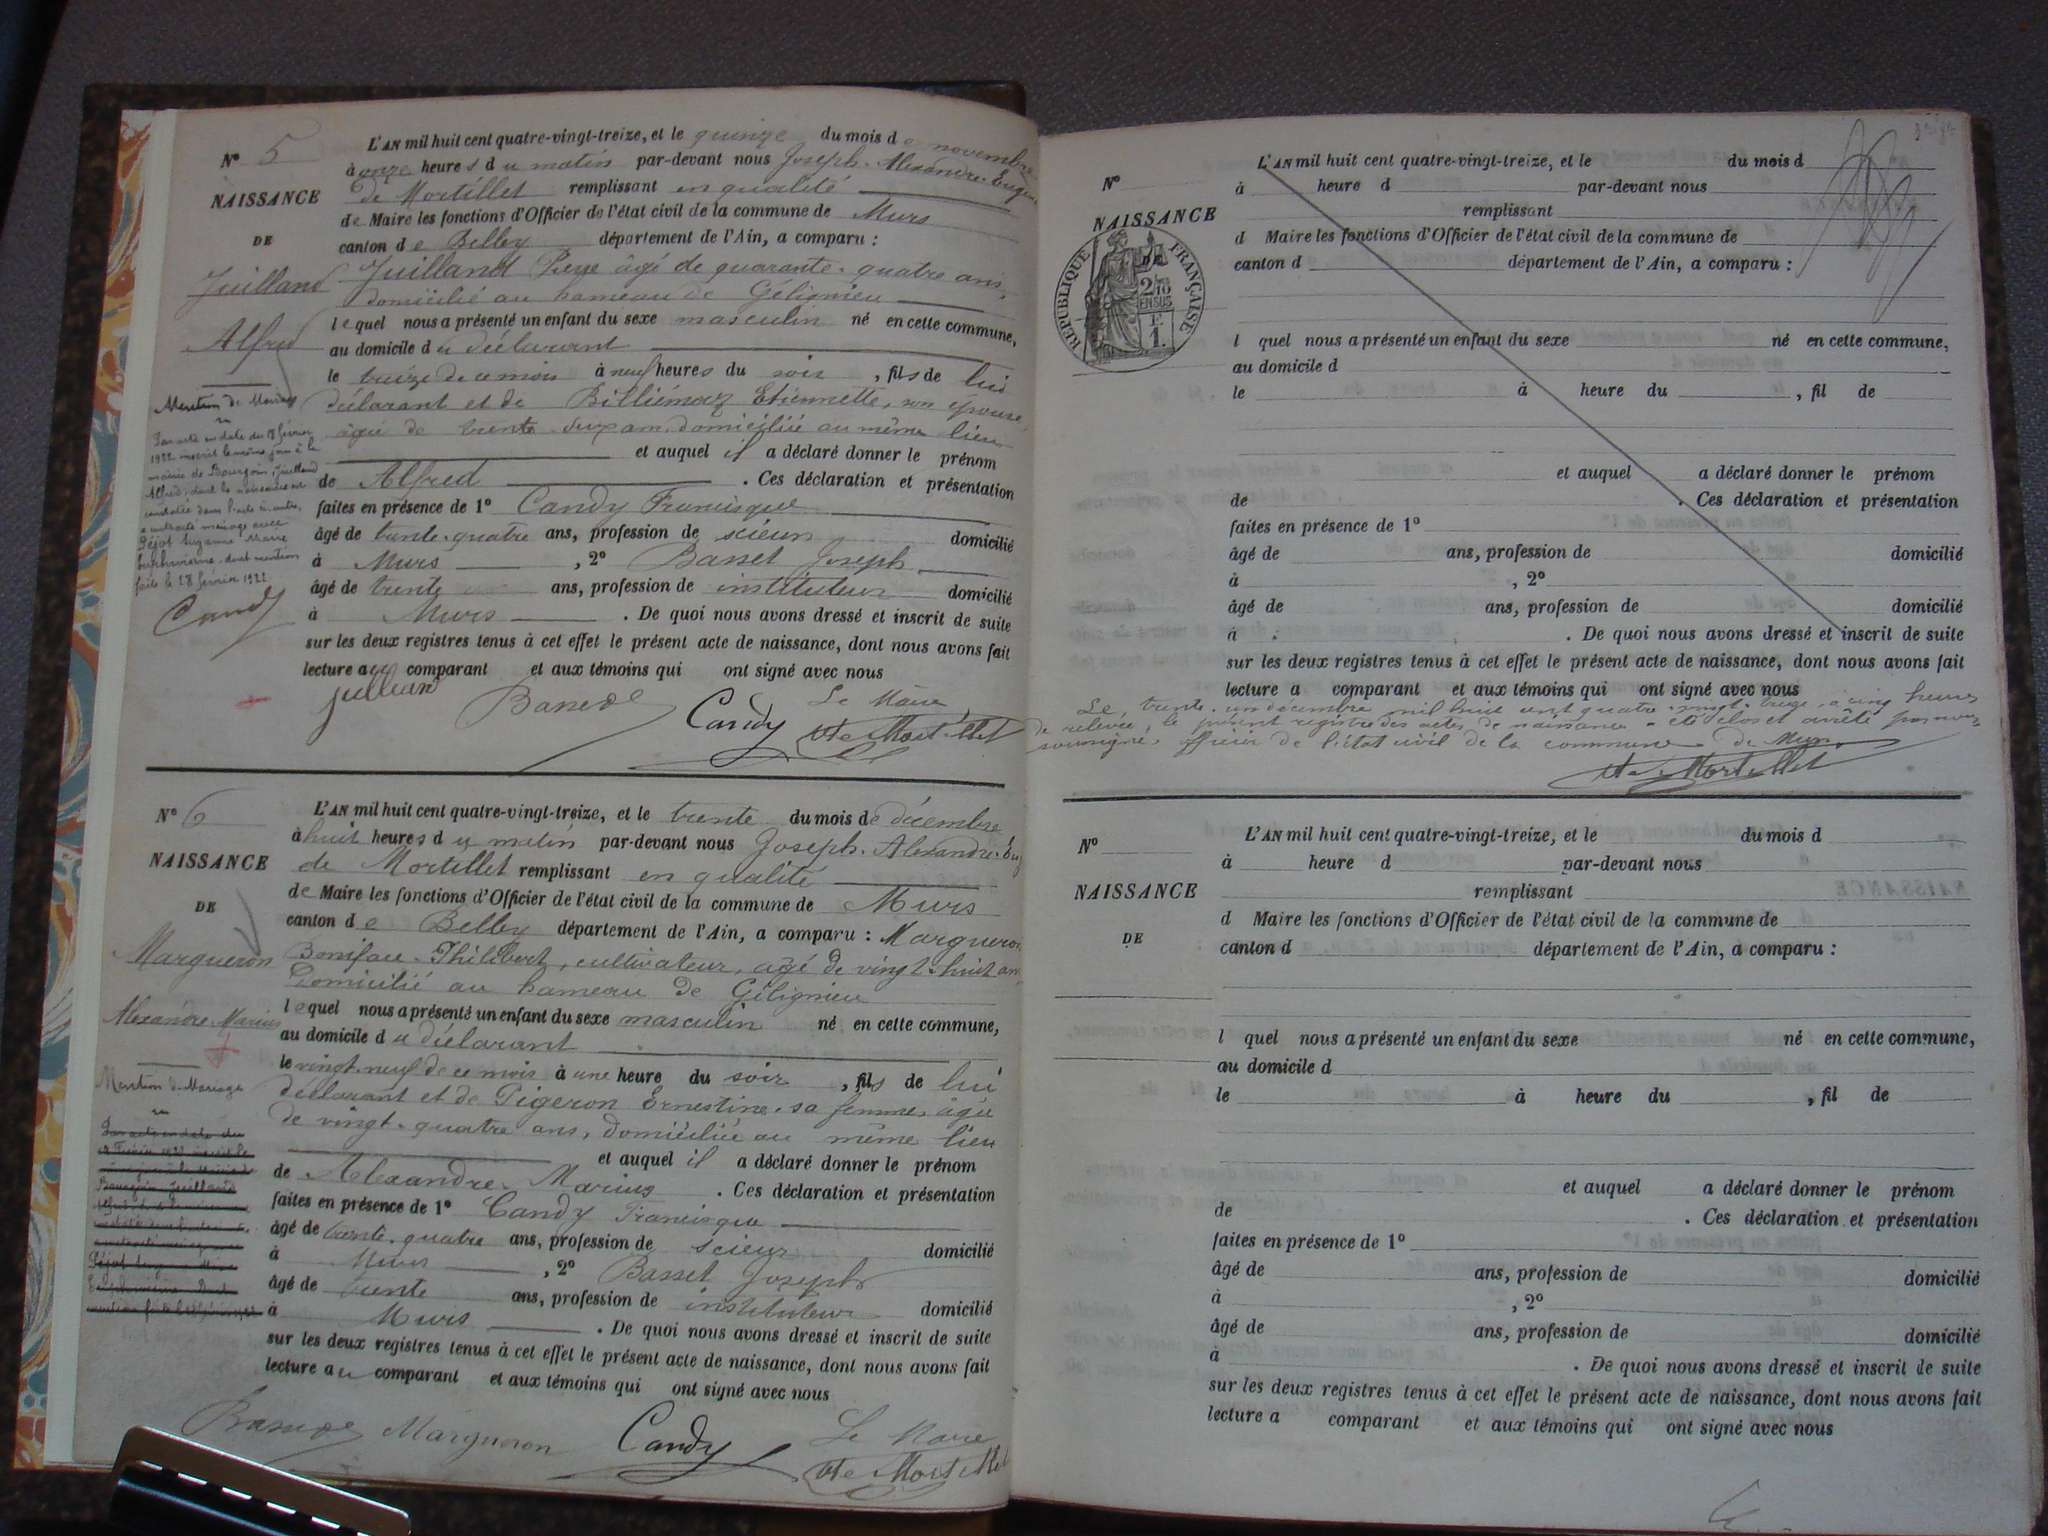 L'AN mil huit cent quatre-vingt-treize, et le quinze du mois de novembre
N° 5
à onze heures du matin par-devant nous Joseph-Alexandre-Eugène
NAISSANCE
de Mortillet remplissant en qualité
de Maire les fonctions d'Officier de l'état civil de la commune de Murs
DE
canton de Belley département de l'Ain, a comparu :
Juilland
Juilland Pierre âgé de quarante-quatre ans,
domicilié au hameau de Gélignieu
lequel nous a présenté un enfant du sexe masculin né en cette commune,
Alfred
au domicile du déclarant
le treize de ce mois à neuf heures du soir, fils de lui
Mention de Mariage
déclarant et de Billiémaz Etiennette, son épouse,
âgée de trente-deux ans, domiciliée au même lieu
et auquel il a déclaré donner le prénom
de Alfred . Ces déclaration et présentation
Par acte en date du 18 février
1922 inscrit le même jour à la
mairie de Bourgoin, Juilland
Alfred, dont la naissance est
constatée dans l'acte ci-contre,
a contracté mariage avec
Suzanne Marie
dont mention
faite le 28 février 1922
Candy
faites en présence de 1° Candy Francisque
âgé de trente-quatre ans, profession de scieur domicilié
à Murs , 2° Basset Joseph
âgé de trente ans, profession de instituteur domicilié
à Murs . De quoi nous avons dressé et inscrit de suite
sur les deux registres tenus à cet effet le présent acte de naissance, dont nous avons fait
lecture au comparant et aux témoins qui ont signé avec nous
Le Maire
Candy
de Mortillet
L'AN mil huit cent quatre-vingt-treize, et le trente du mois de décembre
N° 6
à huit heures du matin par-devant nous Joseph-Alexandre-Eug
NAISSANCE
de Mortillet remplissant en qualité
de Maire les fonctions d'Officier de l'état civil de la commune de Murs
DE
canton de Belley département de l'Ain, a comparu : Margueron
Margueron
Boniface-Philibert, cultivateur, âgé de vingt-huit ans
Domicilié au hameau de Gélignieu
Alexandre-Marius
lequel nous a présenté un enfant du sexe masculin né en cette commune,
au domicile du déclarant
le vingt-neuf de ce mois à une heure du soir, fils de lui
Mention de Mariage
déclarant et de Pigeron Ernestine, sa femme, âgée
de vingt-quatre ans, domiciliée au même lieu
et auquel il a déclaré donner le prénom
de Alexandre-Marius . Ces déclaration et présentation
Par acte en date du
Bourgoin Juilland
faites en présence de 1° Candy Francisque
âgé de trente-quatre ans, profession de scieur domicilié
à Murs , 2° Basset Joseph
âgé de trente ans, profession de instituteur domicilié
à Murs . De quoi nous avons dressé et inscrit de suite
sur les deux registres tenus à cet effet le présent acte de naissance, dont nous avons fait
lecture au comparant et aux témoins qui ont signé avec nous
Margueron Candy Le Maire
de Mortillet
L'AN mil huit cent quatre-vingt-treize, et le du mois d
N°
à heure d par-devant nous
NAISSANCE
remplissant
d Maire les fonctions d'Officier de l'état civil de la commune de
canton d département de l'Ain, a comparu :
RÉPUBLIQUE FRANÇAISE
2/10
EN SUS
F.
1.
l quel nous a présenté un enfant du sexe né en cette commune,
au domicile d
le à heure du , fil de
et auquel a déclaré donner le prénom
de . Ces déclaration et présentation
faites en présence de 1°
âgé de ans, profession de domicilié
à , 2°
âgé de ans, profession de domicilié
à . De quoi nous avons dressé et inscrit de suite
sur les deux registres tenus à cet effet le présent acte de naissance, dont nous avons fait
lecture a comparant et aux témoins qui ont signé avec nous
Le trente-un décembre mil huit cent quatre-vingt-treize, à cinq heures
de relevée, le présent registre des actes de naissance a été clos et arrêté par nous
soussigné, officier de l'état civil de la commune de Murs.
de Mortillet
L'AN mil huit cent quatre-vingt-treize, et le du mois d
N°
à heure d par-devant nous
NAISSANCE
remplissant
d Maire les fonctions d'Officier de l'état civil de la commune de
DE
canton d département de l'Ain, a comparu :
l quel nous a présenté un enfant du sexe né en cette commune,
au domicile d
le à heure du , fil de
et auquel a déclaré donner le prénom
de . Ces déclaration et présentation
faites en présence de 1°
âgé de ans, profession de domicilié
à , 2°
âgé de ans, profession de domicilié
à . De quoi nous avons dressé et inscrit de suite
sur les deux registres tenus à cet effet le présent acte de naissance, dont nous avons fait
lecture a comparant et aux témoins qui ont signé avec nous